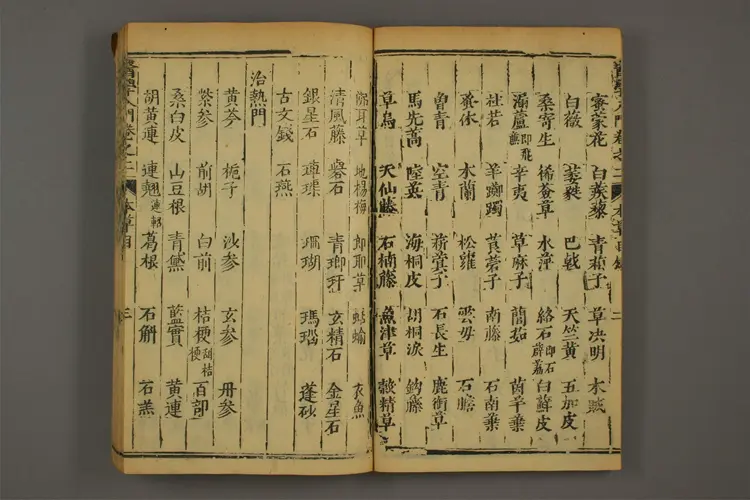 密蒙花 白蒺藜 青葙子 草决明 木賊
白薇 萎蕤 巴戟 天竺黄 五加皮
桑寄生 豨薟草 水萍 絡石即石薜荔 白蘚皮
漏蘆即飛蘆 辛夷 草麻子 蘭茹 茵芋葉
杜若 羊躑躅 莨菪子 南藤 石南葉
蚤休 木蘭 松蘿 雲母 石膽
曾青 空青 菥蓂子 石長生 鹿銜草
馬先蒿 陰地 海桐皮 胡桐淚 鈎藤
草烏 天仙藤 石楠藤 魚津草 穀精草
佛耳草 地楊梅 郎耶草 蛞蝓 衣魚
清風藤 礜石 青瑯玕 玄精石 金星石
銀星石 硨磲 珊瑚 瑪瑙 蓬砂
古文錢 石燕
治熱門
黄芩 梔子 沙參 玄參 丹參
紫參 前胡 白前 桔梗甜桔梗 百部
桑白皮 山豆根 青黛 藍實 黄連
胡黄連 連翹連軺 葛根 石斛 石羔
醫學入門卷之二 本草目 三
醫學入門卷之二 本草目錄 二